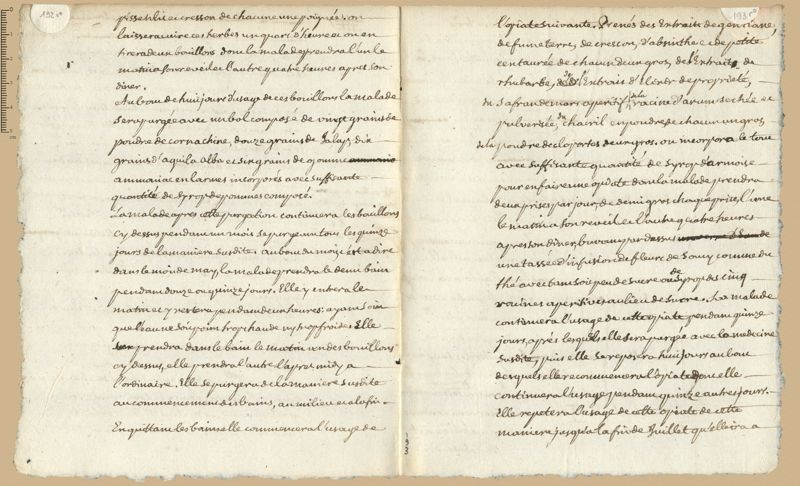 192 v°
pissenlit et cresson de chacune une poignée. on
laissera cuire ces herbes un quart d'heure et on en
tirera deux bouillons dont la malade prendra l'un le
matin a son reveil et l'autre quatre heures apres son
diner.
Au bout de huit jours d'usage de ces bouillons la malade
sera purgée avec un bol composé de vingt grains de
poudre de cornachine, douze grains de Jalap, dix
grains d'aquila alba et six grains de gomme
ammoniac en larmes incorporés avec suffisante
quantité de syrop de pommes composé.
La malade apres cette purgation continuera les bouillons
cy dessus pendant un mois se purgeant tous les quinze
jours de la maniere susdite. au bout du mois c'est a dire
dans le mois de may, la malade prendra le demi bain
pendant douze ou quinze jours. Elle y entrera le
matin et y restera pendant deux heures: ayant soin
que l'eau ne soit point trop chaude ny trop froide. Elle
prendra dans le bain le matin un des bouillons
cy dessus, elle prendra l'autre l'apres midy a
l'ordinaire. Elle se purgera de la maniere susdite
au commencement des bains, au milieu et a la fin.
En quittant les bains elle commencera l'usage de
193 r°
l'opiate suivante. Prenés des Extraits de gentiane,
de fumeterre, de cresson, d'absinthe et de petite
centaurée de chacun deux gros, de l'Extrait de
rhubarbe, de l'Extrait d'Elixir de proprieté,
du safran de mars aperitif, de la racine d'arum sechée et
pulversée, en poudre de chacun un gros,
de la poudre de cloportes deux gros. on incorpora le tout
avec suffisante quantité de syrop d'armoise
pour en faire une opiate dont la malade prendra
deux prises par jour, de demi gros chaque prise, l'une
le matin a son reveil et l'autre quatre heures
apres son diner, buvant par dessus
une tassée d'infusion de fleurs de Soucy comme du
thé avec tant soit peu de sucre ou de syrop des cinq
racines aperitives au lieu de sucre. La malade
continuera l'usage de cette opiate pendant quinze
jours, après lesquels elle sera purgée avec la medecine
susdite, puis elle se reposera huit jours au bout
desquels elle recommencera l'opiate dont elle
continuera l'usage pendant quinze autres jours.
Elle repetera l'usage de cette opiate de cette
maniere jusqu'a la fin de Juillet qu'elle ira a